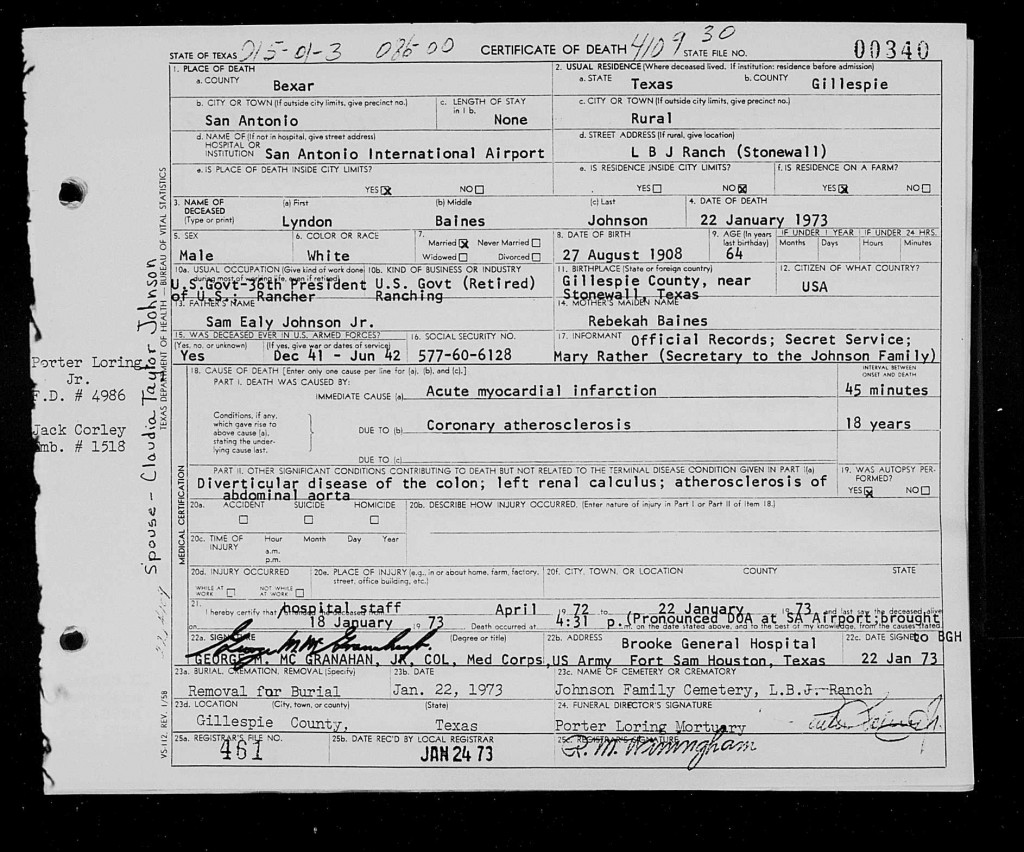 STATE OF TEXAS 015-01-3 086-00 CERTIFICATE OF DEATH 4109 30 STATE FILE NO. 00340
1. PLACE OF DEATH
a. COUNTY Bexar
2. USUAL RESIDENCE (Where deceased lived. If institution: residence before admission)
a. STATE Texas b. COUNTY Gillespie
b. CITY OR TOWN (If outside city limits, give precinct no.) San Antonio
c. LENGTH OF STAY in 1 b. None
c. CITY OR TOWN (If outside city limits, give precinct no.) Rural
d. NAME OF (If not in hospital, give street address)
HOSPITAL OR
INSTITUTION San Antonio International Airport
d. STREET ADDRESS (If rural, give location)
L B J Ranch (Stonewall)
e. IS PLACE OF DEATH INSIDE CITY LIMITS?
YES☒ NO☐
e. IS RESIDENCE INSIDE CITY LIMITS?
YES☐ NO☒
f. IS RESIDENCE ON A FARM?
YES☒ NO☐
3. NAME OF DECEASED (Type or print)
(a) First Lyndon (b) Middle Baines (c) Last Johnson
4. DATE OF DEATH
22 January 1973
5. SEX
Male
6. COLOR OR RACE
White
7. Married☒ Never Married☐
Widowed☐ Divorced☐
8. DATE OF BIRTH
27 August 1908
9. AGE (In years last birthday) 64
IF UNDER 1 YEAR Months Days
IF UNDER 24 HRS. Hours Minutes
10a. USUAL OCCUPATION (Give kind of work done during most of working life, even if retired)
U.S.Govt-36th President
of U.S.; Rancher
10b. KIND OF BUSINESS OR INDUSTRY
U.S. Govt (Retired)
Ranching
11. BIRTHPLACE (State or foreign country)
Gillespie County, near
Stonewall, Texas
12. CITIZEN OF WHAT COUNTRY?
USA
13. FATHER'S NAME
Sam Ealy Johnson Jr.
14. MOTHER'S MAIDEN NAME
Rebekah Baines
15. WAS DECEASED EVER IN U.S. ARMED FORCES?
(Yes, no, or unknown) (If yes, give war or dates of service)
Yes Dec 41 - Jun 42
16. SOCIAL SECURITY NO.
577-60-6128
17. INFORMANT Official Records; Secret Service;
Mary Rather (Secretary to the Johnson Family)
18. CAUSE OF DEATH [Enter only one cause per line for (a), (b), and (c).]
INTERVAL BETWEEN ONSET AND DEATH
PART I. DEATH WAS CAUSED BY:
IMMEDIATE CAUSE (a) Acute myocardial infarction 45 minutes
Conditions, if any, which gave rise to above cause (a), stating the underlying cause last.
DUE TO (b) Coronary atherosclerosis 18 years
DUE TO (c)
PART II. OTHER SIGNIFICANT CONDITIONS CONTRIBUTING TO DEATH BUT NOT RELATED TO THE TERMINAL DISEASE CONDITION GIVEN IN PART I(a)
Diverticular disease of the colon; left renal calculus; atherosclerosis of
abdominal aorta
19. WAS AUTOPSY PERFORMED?
YES☒ NO☐
20a. ACCIDENT SUICIDE HOMICIDE
☐ ☐ ☐
20b. DESCRIBE HOW INJURY OCCURRED. (Enter nature of injury in Part I or Part II of Item 18.)
20c. TIME OF INJURY Hour Month Day Year
a.m.
p.m.
20d. INJURY OCCURRED
WHILE AT WORK ☐ NOT WHILE AT WORK ☐
20e. PLACE OF INJURY (e.g., in or about home, farm, factory, street, office building, etc.)
20f. CITY, TOWN, OR LOCATION COUNTY STATE
21. I hereby certify that hospital staff attended the deceased from April 1972 to 22 January 1973 and last saw the deceased alive
on 18 January 1973 Death occurred at 4:31 p.m. on the date stated above, and to the best of my knowledge, from the causes stated.
(Pronounced DOA at SA Airport;brought
to BGH
22a. SIGNATURE (Degree or title)
George M. McGranahan Jr.
GEORGE M. MC GRANAHAN, JR, COL, Med Corps,
22b. ADDRESS
Brooke General Hospital
US Army Fort Sam Houston, Texas
22c. DATE SIGNED
22 Jan 73
23a. BURIAL, CREMATION, REMOVAL (Specify)
Removal for Burial
23b. DATE
Jan. 22, 1973
23c. NAME OF CEMETERY OR CREMATORY
Johnson Family Cemetery, L.B.J. Ranch
23d. LOCATION (City, town, or county) (State)
Gillespie County, Texas
24. FUNERAL DIRECTOR'S SIGNATURE
Porter Loring Mortuary
25a. REGISTRAR'S FILE NO.
461
25b. DATE REC'D BY LOCAL REGISTRAR
JAN 24 73
25c. REGISTRAR'S SIGNATURE
MEDICAL CERTIFICATION
TEXAS DEPARTMENT OF HEALTH — BUREAU OF VITAL STATISTICS
VS-112, REV. 1/58
Spouse - Claudia Taylor Johnson
Porter Loring,
Jr.
F.D. # 4986
Jack Corley
Emb. # 1518